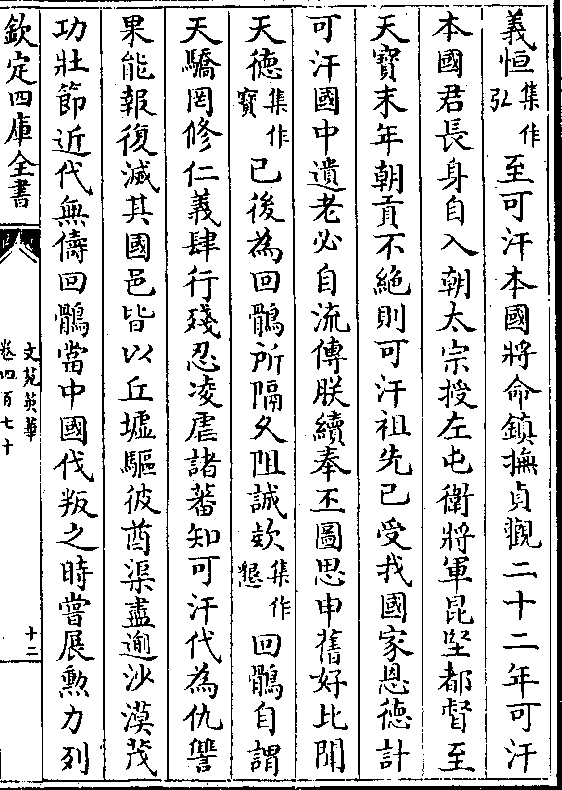 義恒集作弘至可汗本國將命鎮撫貞觀二十二年可汗
本國君長身自入朝太宗授左屯衛將軍昆堅都督至
天寶末年朝貢不絶則可汗祖先已受我國家恩德計
可汗國中遺老必自流傳朕續奉丕圖思申舊好比聞
天德集作寶已後為回鶻所隔久阻誠欵集作懇回鶻自謂
天驕罔修仁義肆行殘忍凌虐諸蕃知可汗代為仇讐
果能報復滅其國邑皆以丘墟驅彼酋渠盡逾沙漠茂
功壯節近代無儔回鶻當中國伐叛之時嘗展勲力列
欽定四庫全書
文苑英華
卷四百七十
十二